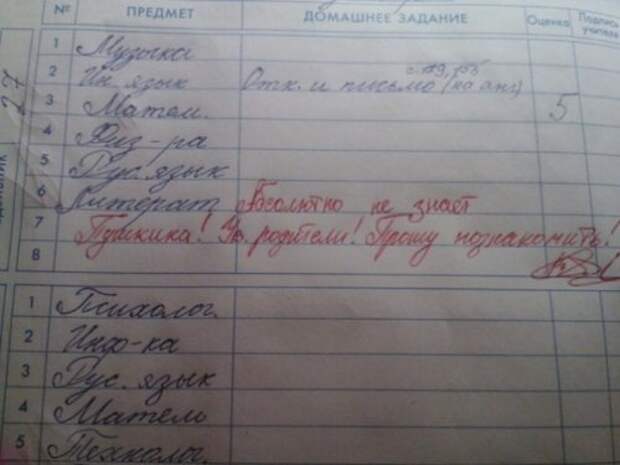 № ПРЕДМЕТ ДОМАШНЕЕ ЗАДАНИЕ Оценка Подпись учителя
27
1 Музыка
2 Ин. язык Отк. и письмо (на анг)
3 Матем. 5
4 Физ-ра
5 Рус. язык
6 Литерат. Абсолютно не знает
7 Пушкина! Ув. родители! Прошу познакомить!
8
1 Психолог.
2 Инфо-ка
3 Рус. язык
4 Матем
5 Технолог.